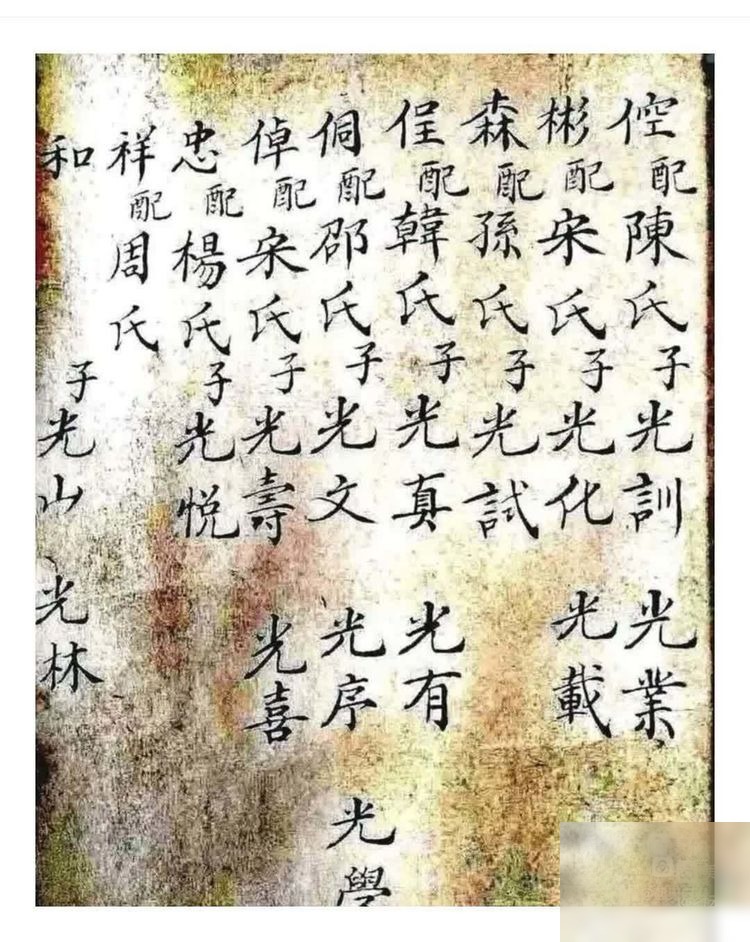 倥配陳氏子光訓 光業
彬配宋氏子光化 光載
森配孫氏子光試
侱配韓氏子光真 光有
侗配邵氏子光文 光序 光學
倬配宋氏子光壽 光喜
忠配楊氏子光悅
祥配周氏
和 子光山 光林